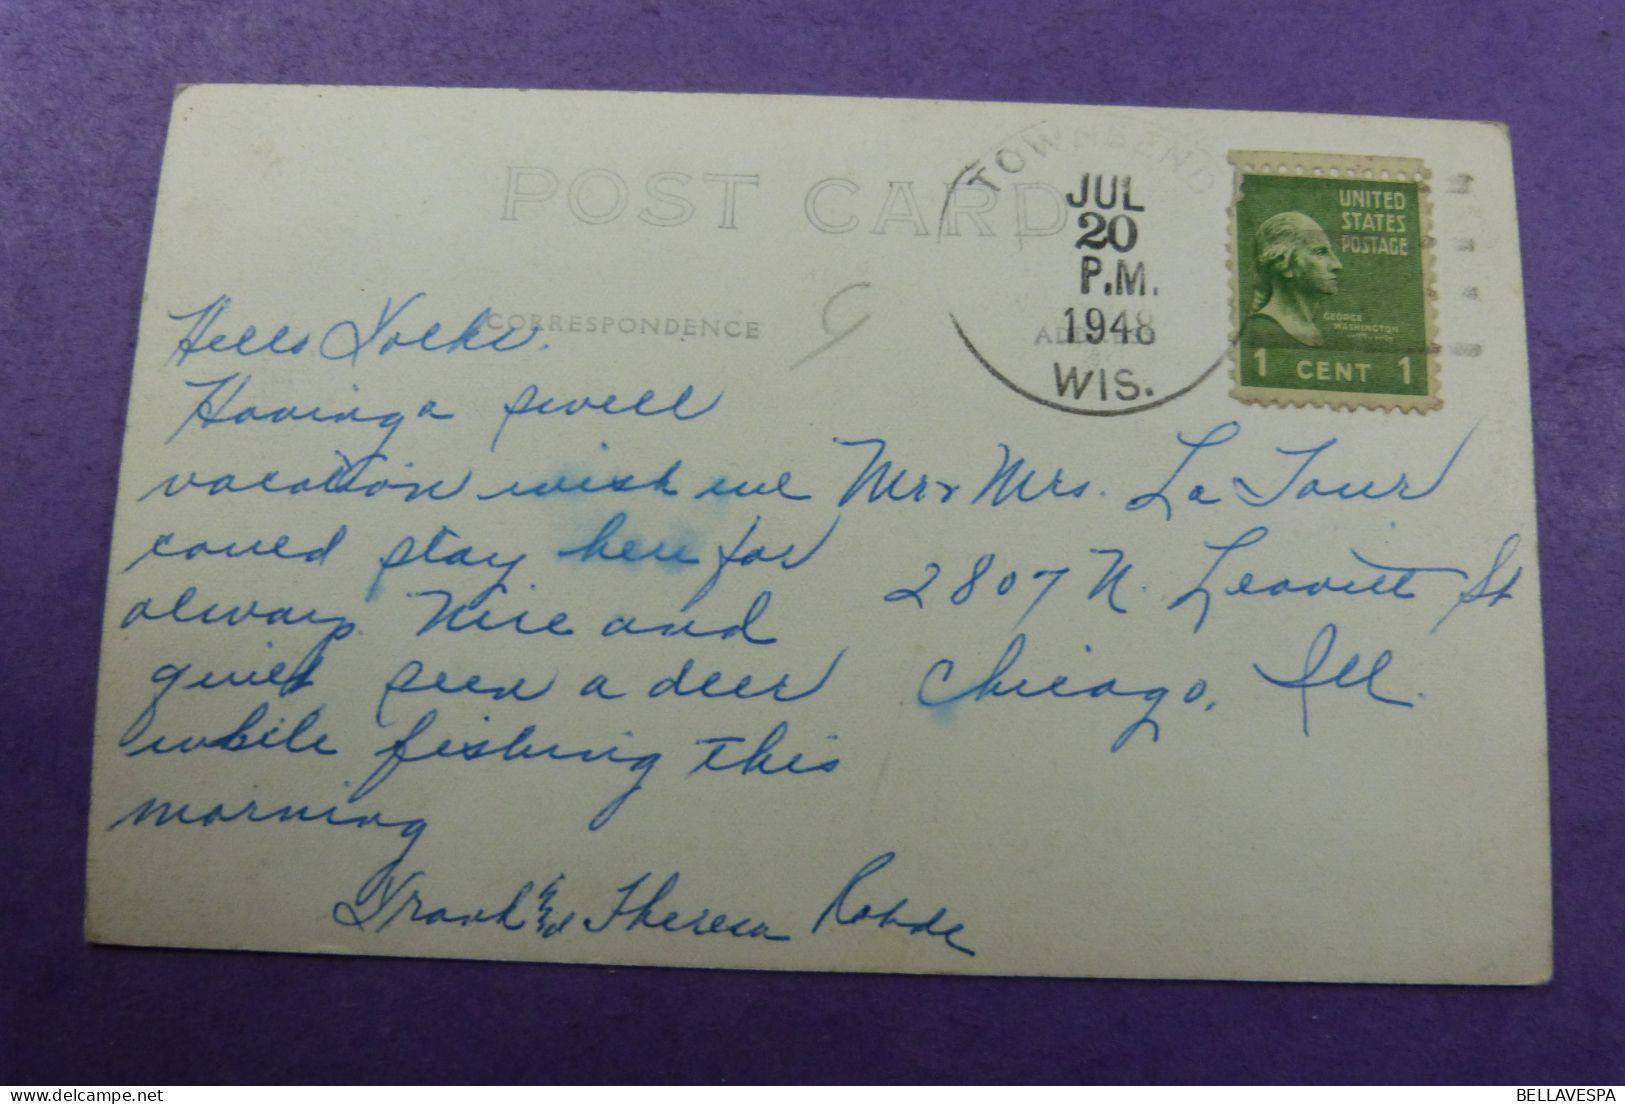 POST CARD
TOWNSEND
JUL
20
P.M.
1948
WIS.
UNITED
STATES
POSTAGE
GEORGE
WASHINGTON
1 CENT 1
CORRESPONDENCE
Hello Folks.
Having a swell
vacation wish we
could stay here for
always. Nice and
quiet seen a deer
while fishing this
morning
Frank and Theresa Rohde
Mr & Mrs. La Tour
2807 N. Leavitt St
Chicago, Ill.
BELLAVESPA